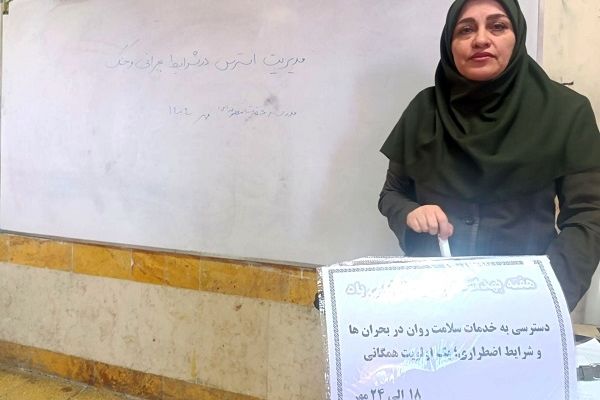 مدیریت استرس در شرایط بحرانی و جنگ
مهر ۱۴۰۴
هفته
دسترسی به خدمات سلامت روان در بحران ها
و شرایط اضطراری؛ یک اولویت همگانی
۱۸ الی ۲۴ مهر